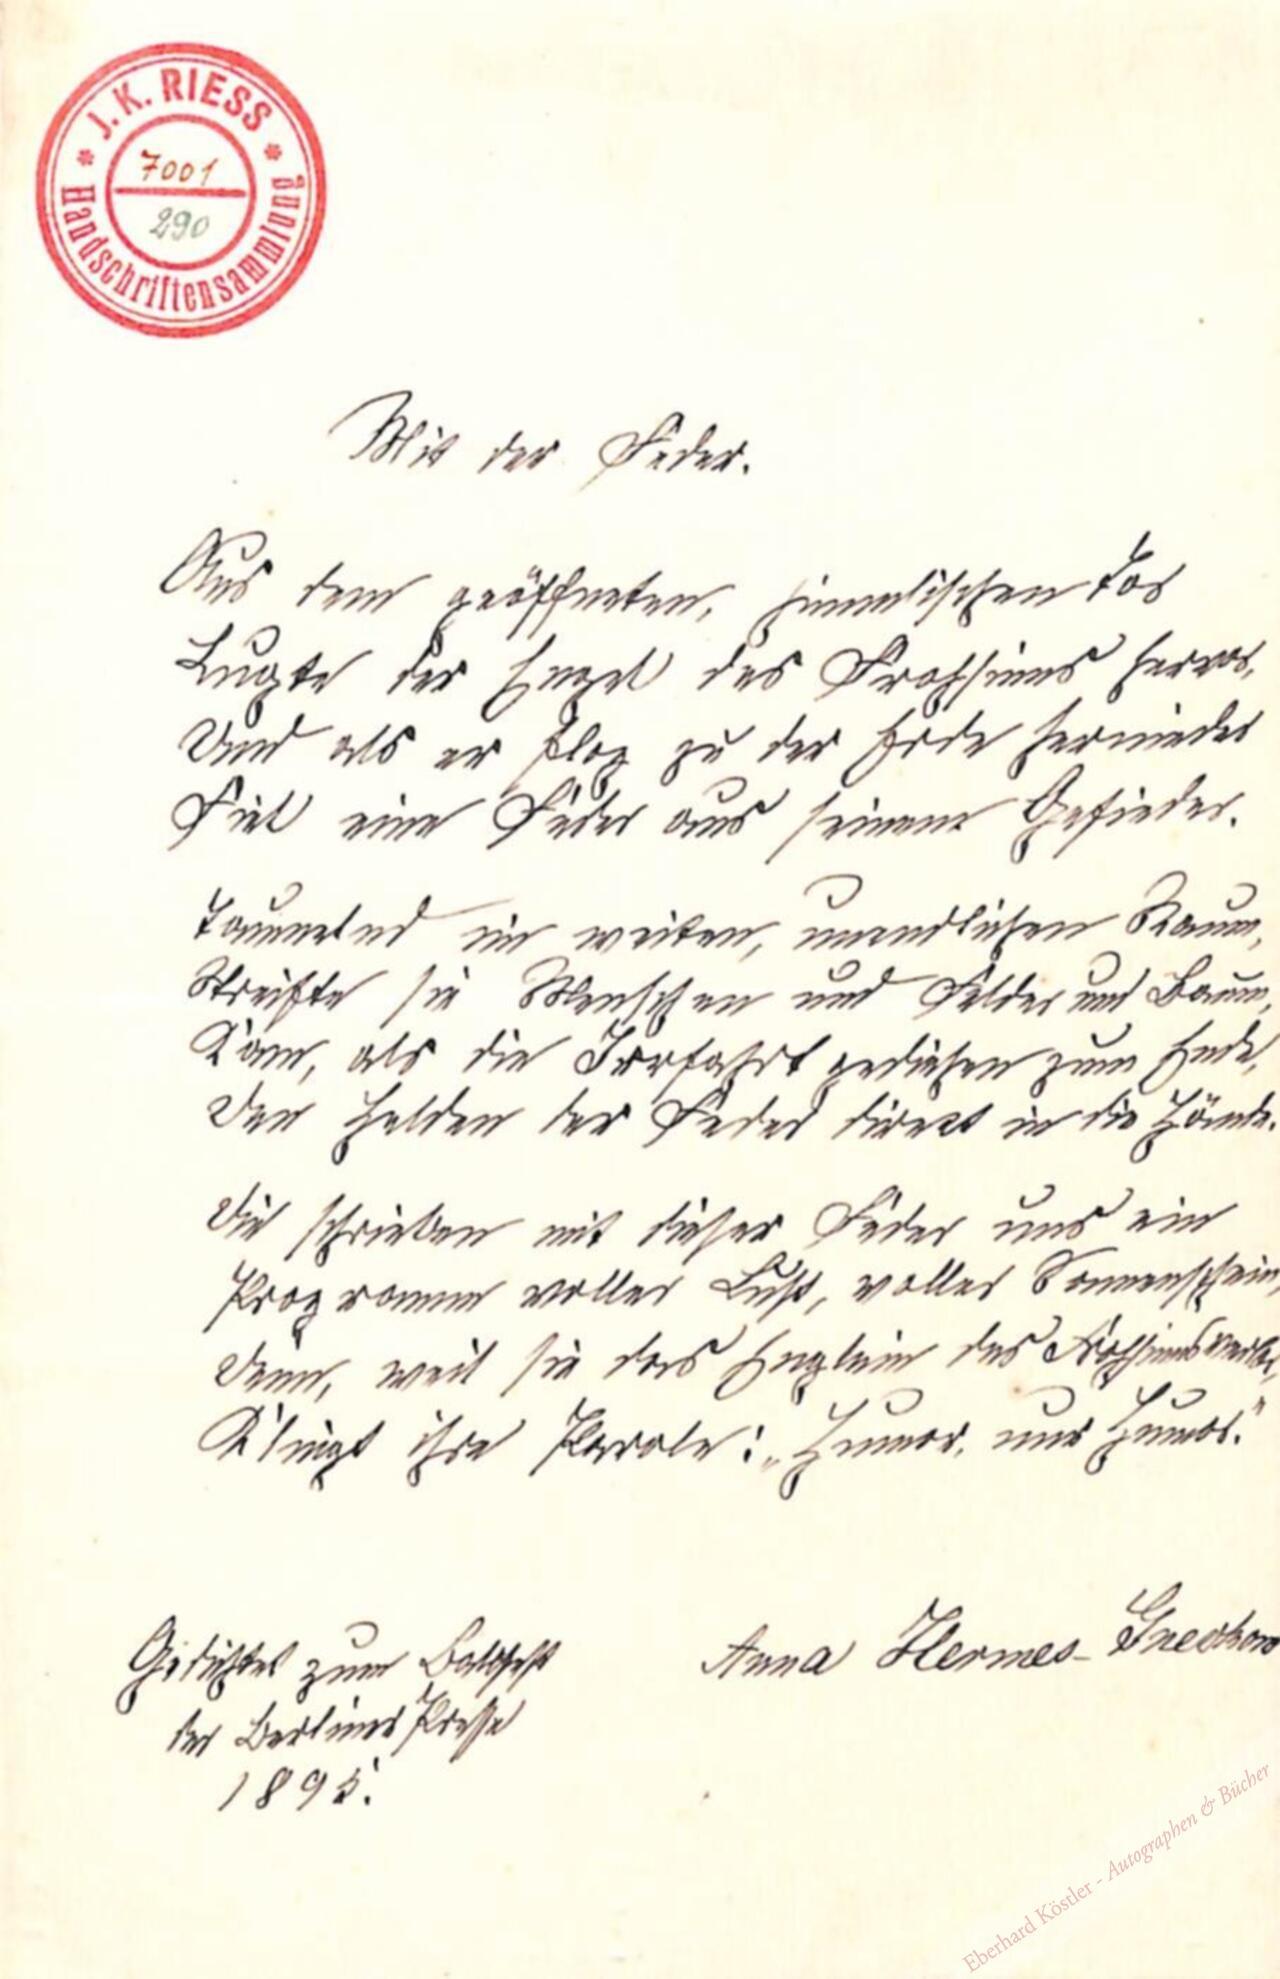 J. K. RIESS
7001
290
Handschriftensammlung
Mit der Feder.
Aus dem geöffneten, himmlischen Tor
Lugte der Engel des Frohsinns hervor,
Und als er flog zu der Erde hernieder
Fiel eine Feder aus seinem Gefieder.
Taumelnd im weiten, unendlichen Raum,
Streifte sie Menschen und Felder und Baum,
Kam, als die Irrfahrt gediehen zum Ende,
Den Helden der Feder direkt in die Hände.
Die schrieben mit dieser Feder uns ein
Programm voller Lust, voller Sonnenschein,
Denn, weil sie das Englein des Frohsinns
Klingt ihre Parole: „Humor, nur Humor."
Gedichtet zum
der Berliner Presse
1895.
Anna Hermes-
Eberhard Köstler - Autographen & Bücher